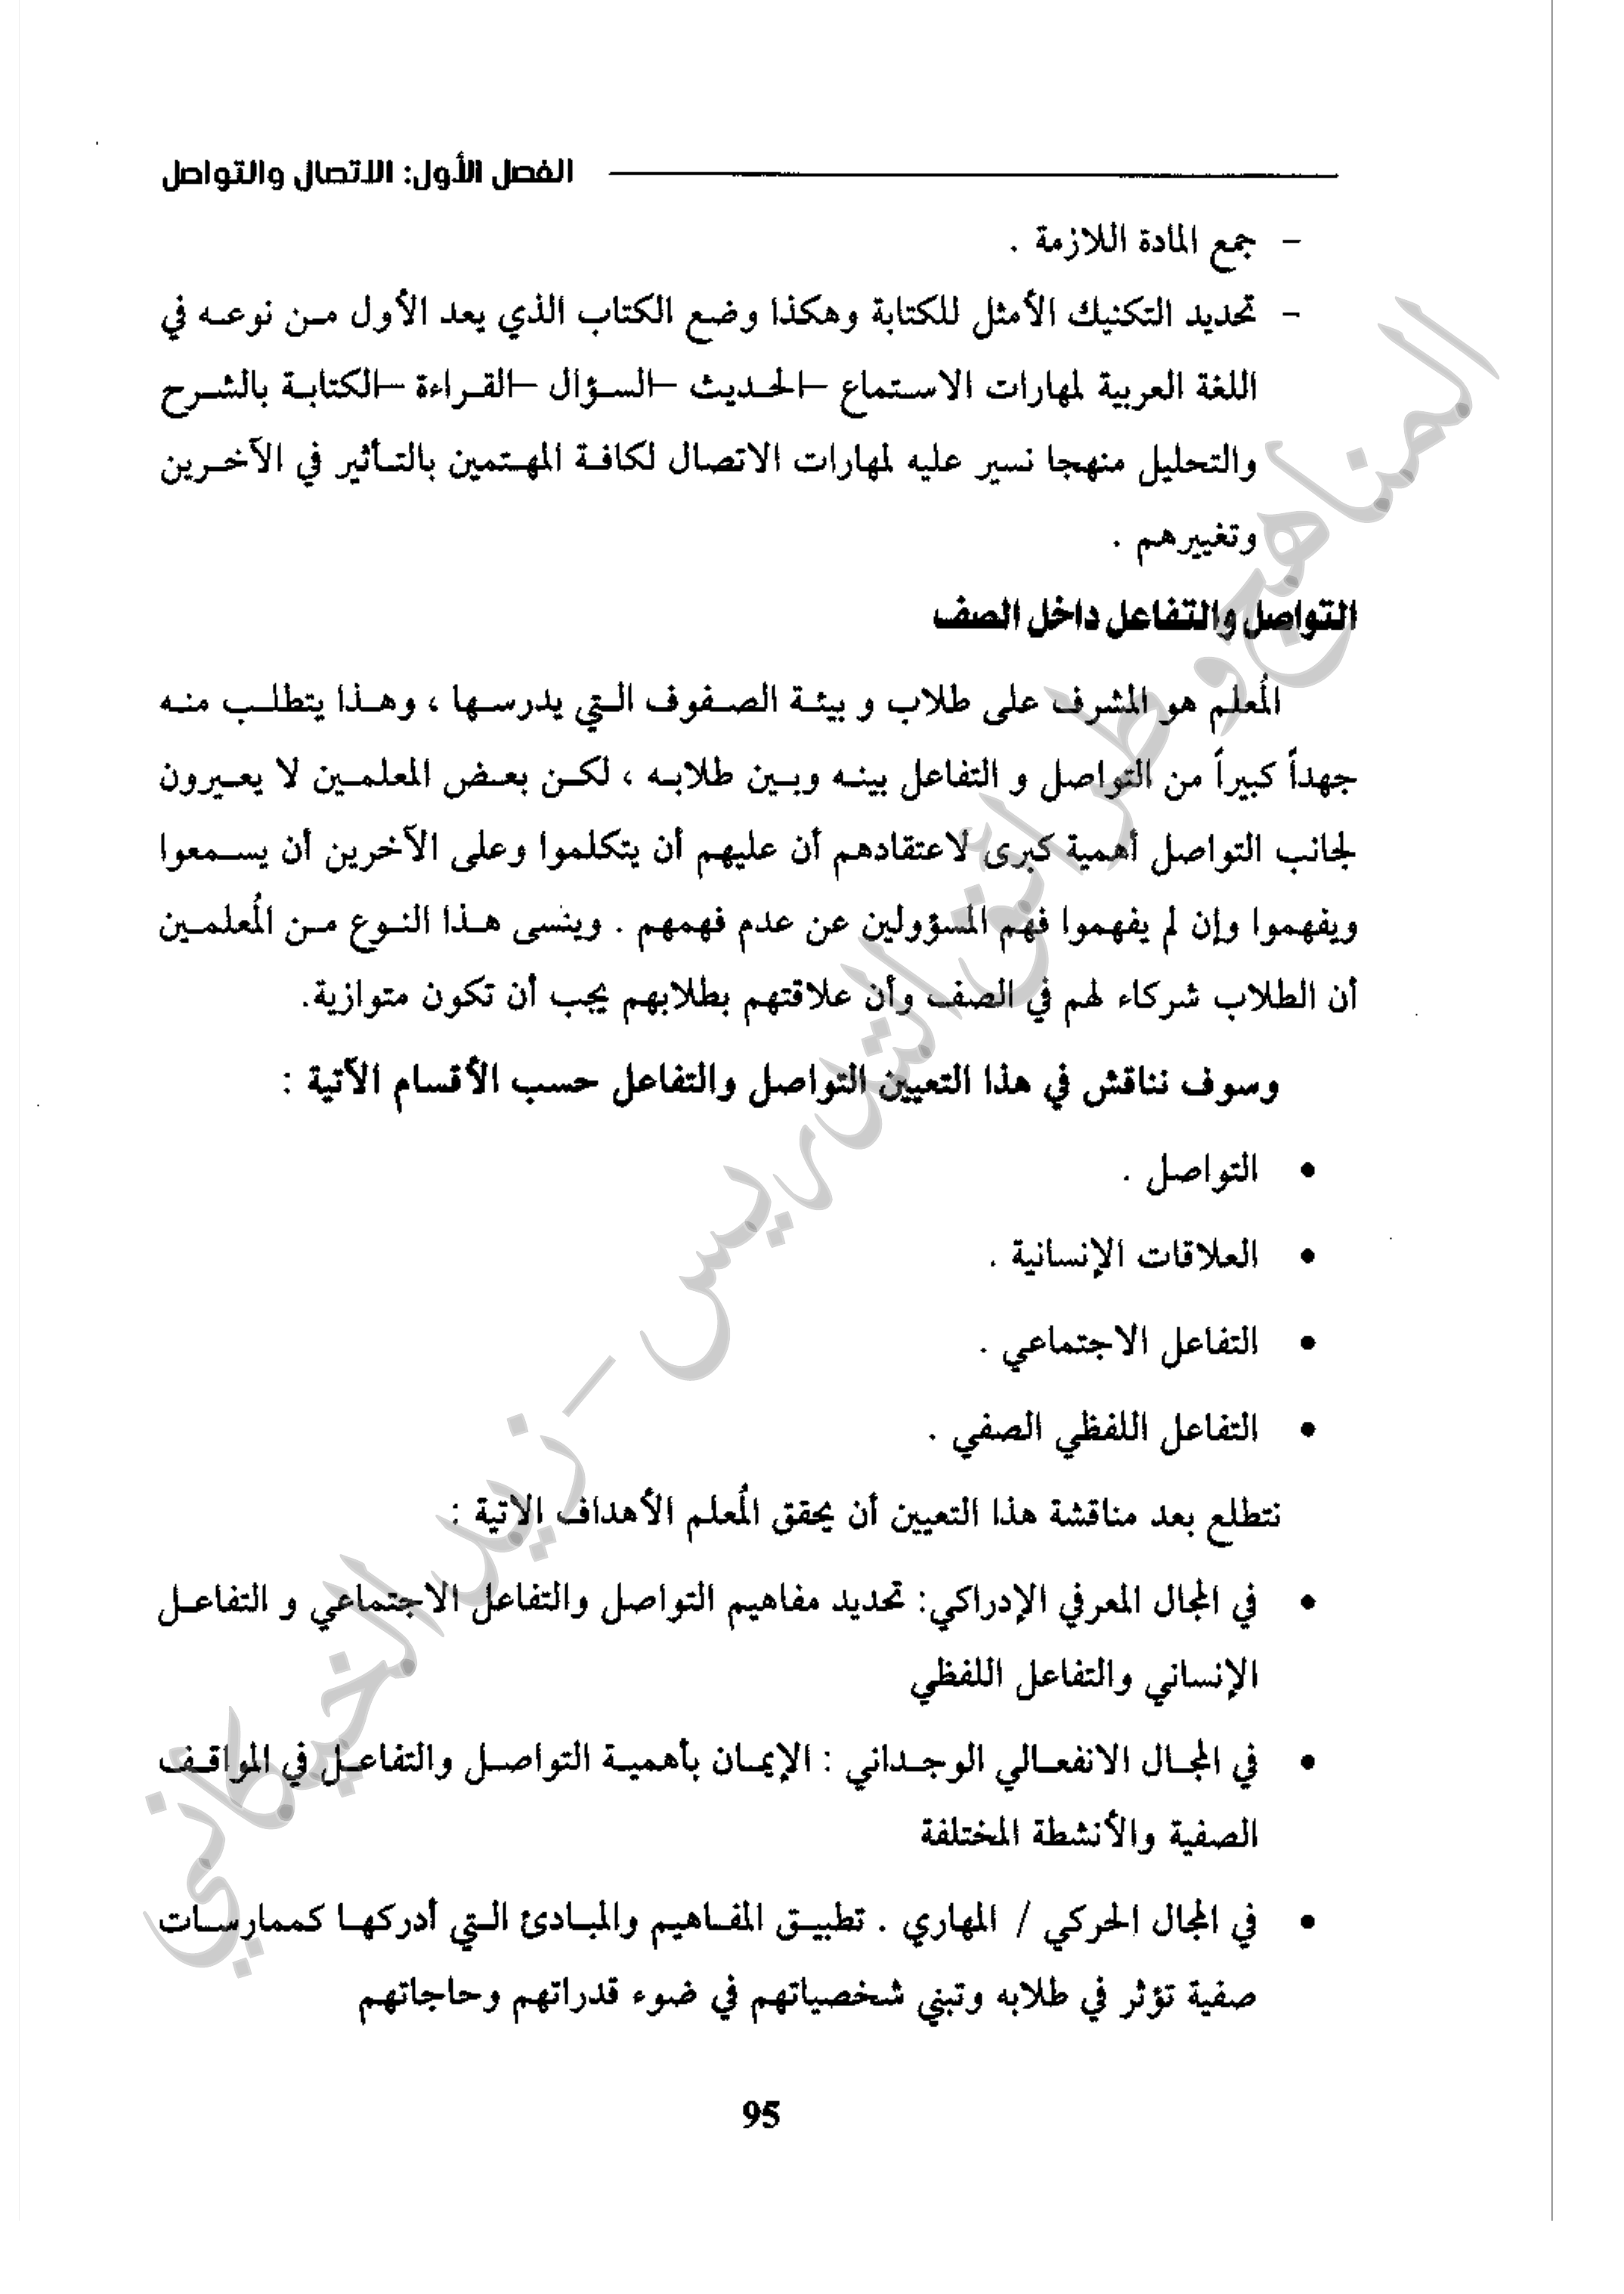 الفصل الأول: الاتصال والتواصل
- جمع المادة اللازمة .
- تحديد التكنيك الأمثل للكتابة وهكذا وضع الكتاب الذي يعد الأول من نوعه في
اللغة العربية لمهارات الاستماع –الحديث –السؤال –القراءة –الكتابة بالشرح
والتحليل منهجا نسير عليه لمهارات الاتصال لكافة المهتمين بالتأثير في الآخرين
وتغييرهم .
التواصل والتفاعل داخل الصف
المُعلم هو المشرف على طلاب و بيئة الصفوف التي يدرسها ، وهذا يتطلب منه
جهداً كبيراً من التواصل و التفاعل بينه وبين طلابه ، لكن بعض المعلمين لا يعيرون
لجانب التواصل أهمية كبرى لاعتقادهم أن عليهم أن يتكلموا وعلى الآخرين أن يسمعوا
ويفهموا وإن لم يفهموا فهم المسؤولين عن عدم فهمهم . وينسى هذا النوع من المُعلمين
أن الطلاب شركاء لهم في الصف وأن علاقتهم بطلابهم يجب أن تكون متوازية.
وسوف نناقش في هذا التعيين التواصل والتفاعل حسب الأقسام الآتية :
• التواصل .
• العلاقات الإنسانية .
• التفاعل الاجتماعي .
• التفاعل اللفظي الصفي .
نتطلع بعد مناقشة هذا التعيين أن يحقق المُعلم الأهداف الاتية :
• في المجال المعرفي الإدراكي: تحديد مفاهيم التواصل والتفاعل الاجتماعي و التفاعل
الإنساني والتفاعل اللفظي
• في المجال الانفعالي الوجداني : الإيمان بأهمية التواصل والتفاعل في المواقف
الصفية والأنشطة المختلفة
• في المجال الحركي / المهاري . تطبيق المفاهيم والمبادئ التي أدركها كممارسات
صفية تؤثر في طلابه وتبني شخصياتهم في ضوء قدراتهم وحاجاتهم
95
المناهج وطرائق التدريس – زيد الخيكاني